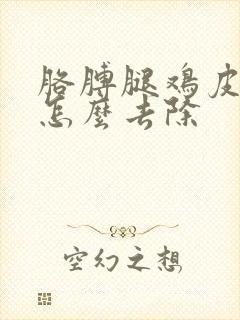 胳膊腿鸡皮
怎麼去除
空幻之想